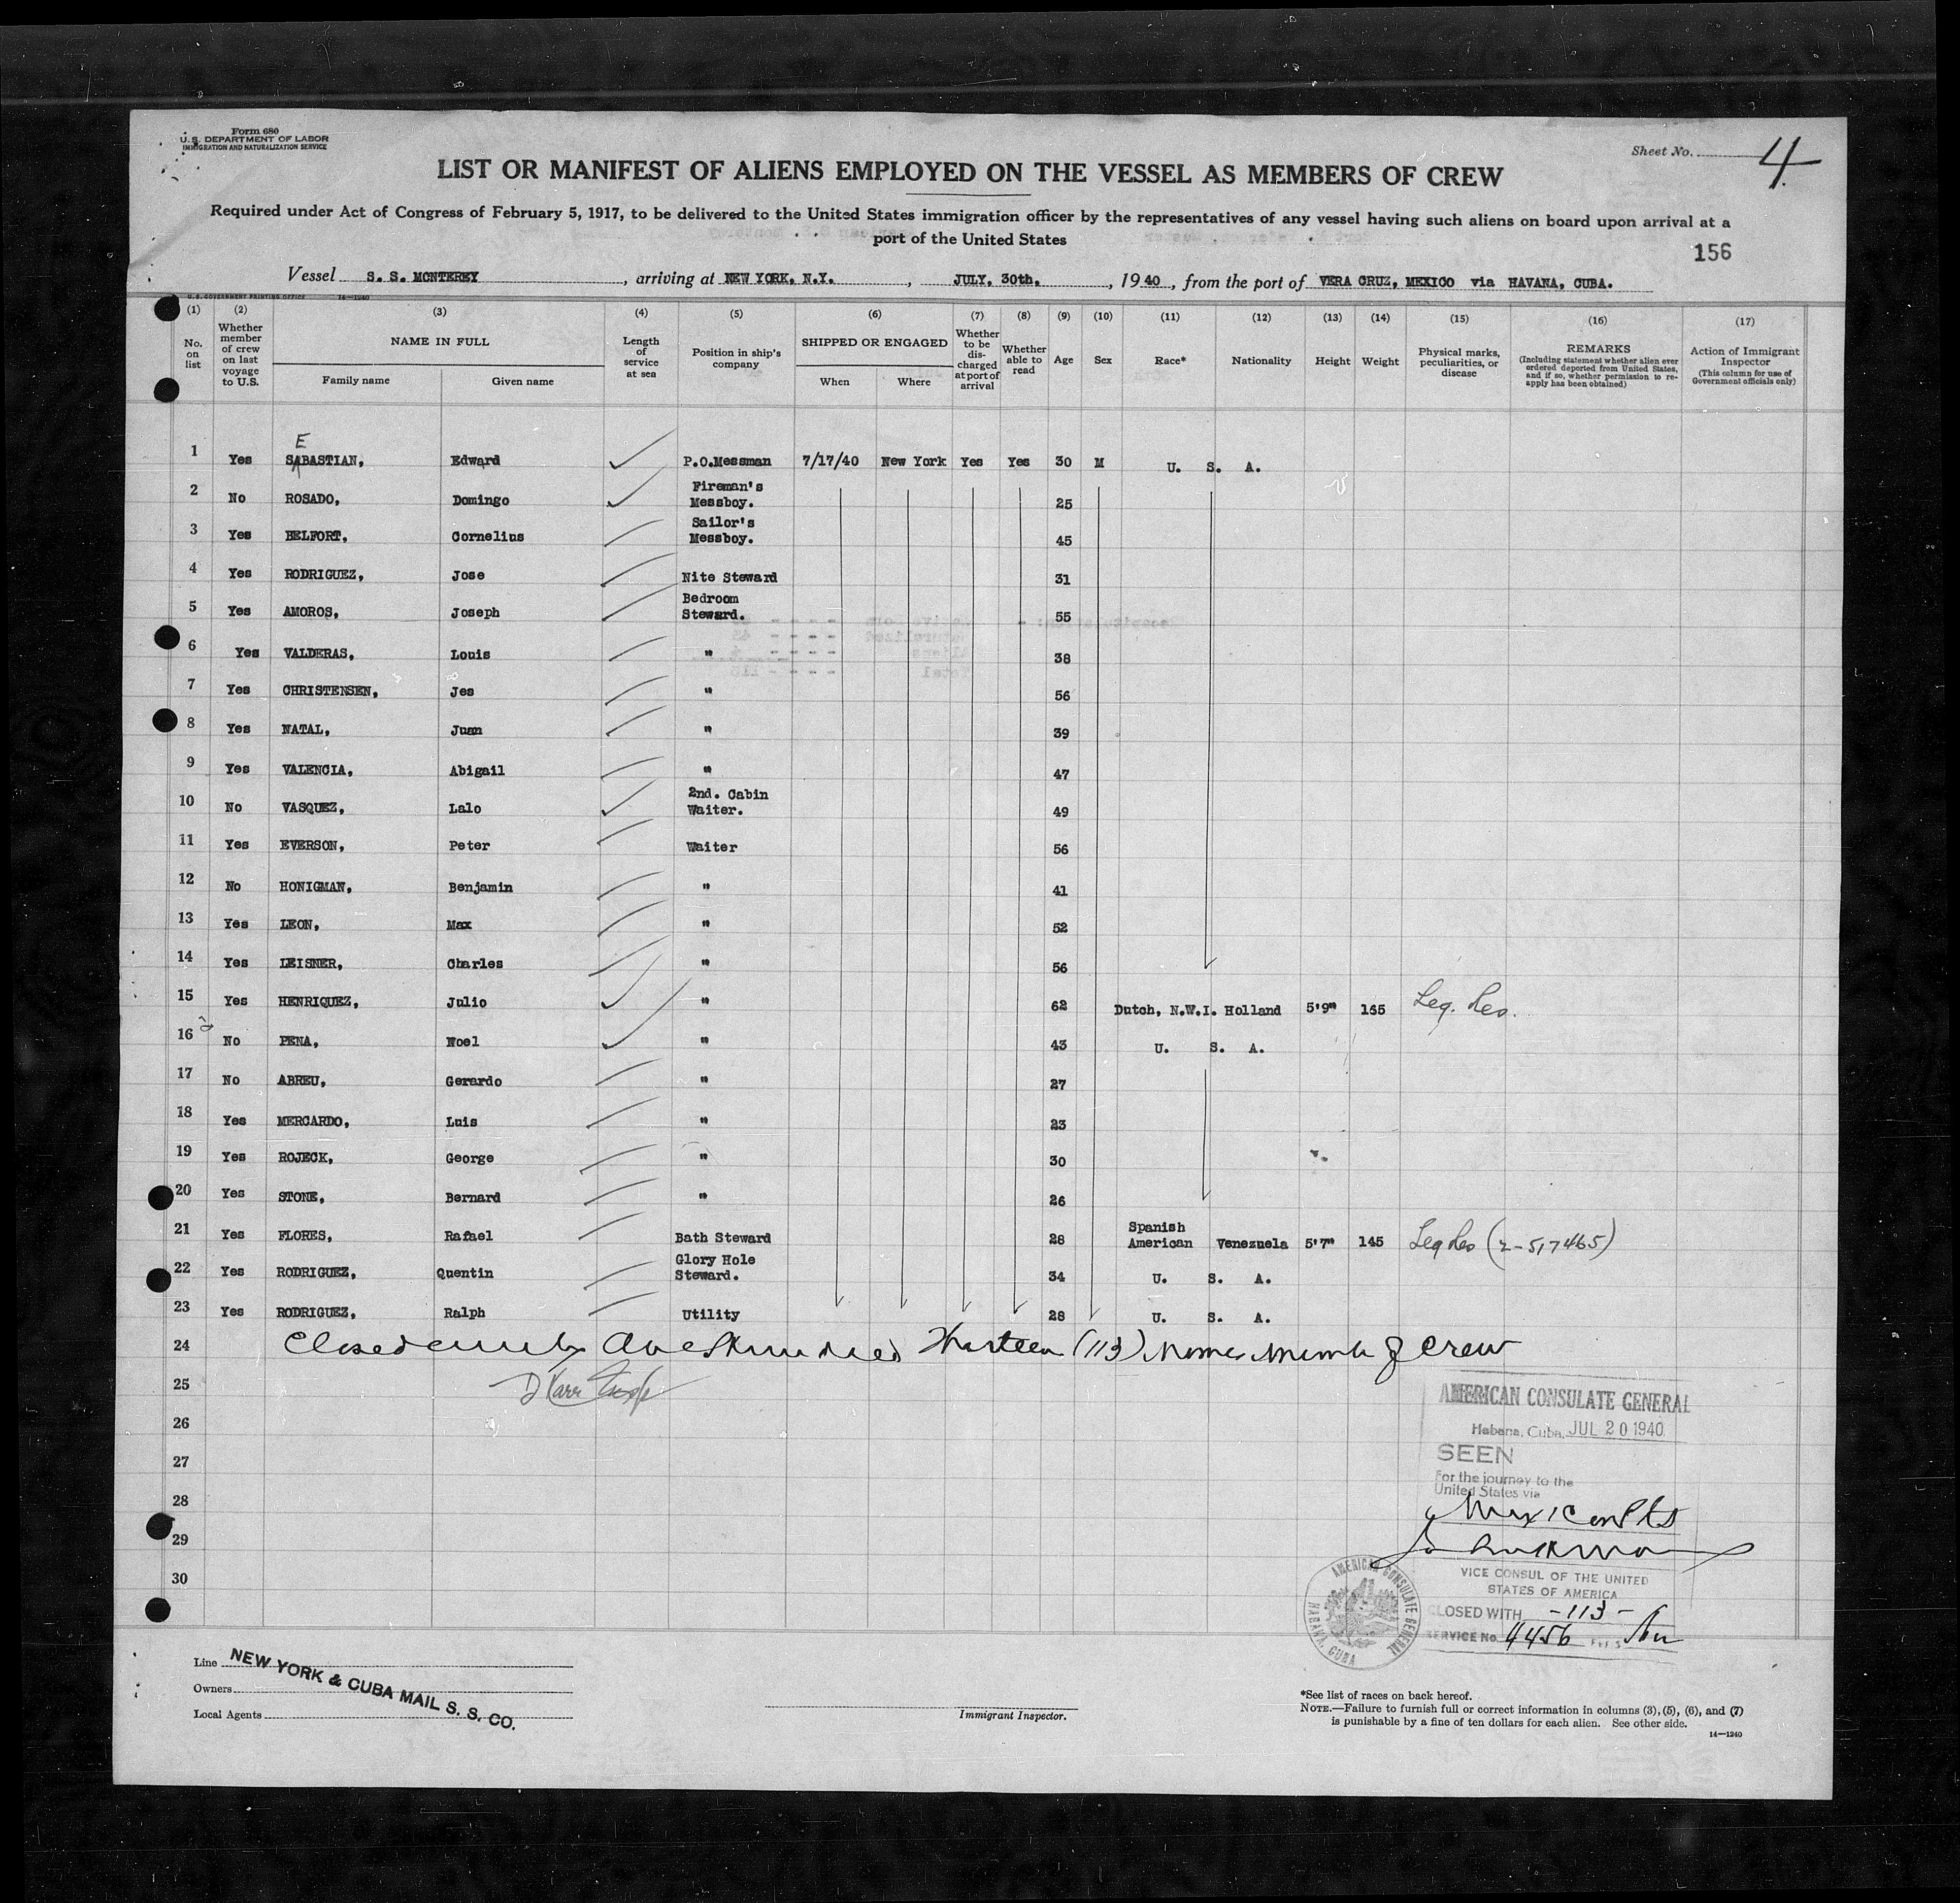 Form 680
U.S. DEPARTMENT OF LABOR
IMMIGRATION AND NATURALIZATION SERVICE
Sheet No. 4
LIST OR MANIFEST OF ALIENS EMPLOYED ON THE VESSEL AS MEMBERS OF CREW
Required under Act of Congress of February 5, 1917, to be delivered to the United States immigration officer by the representatives of any vessel having such aliens on board upon arrival at a
port of the United States
156
Vessel S. S. MONTEREY, arriving at NEW YORK, N.Y., JULY, 30th, 1940, from the port of VERA CRUZ, MEXICO via HAVANA, CUBA.
U.S. GOVERNMENT PRINTING OFFICE 14—1240
(1) No. on list
(2) Whether member of crew on last voyage to U.S.
(3) NAME IN FULL Family name Given name
(4) Length of service at sea
(5) Position in ship's company
(6) SHIPPED OR ENGAGED When Where
(7) Whether to be discharged at port of arrival
(8) Whether able to read
(9) Age
(10) Sex
(11) Race*
(12) Nationality
(13) Height
(14) Weight
(15) Physical marks, peculiarities, or disease
(16) REMARKS (Including statement whether alien ever ordered deported from United States, and if so, whether permission to re-apply has been obtained)
(17) Action of Immigrant Inspector (This column for use of Government officials only)
E
1 Yes SABASTIAN, Edward P.O.Messman 7/17/40 New York Yes Yes 30 M U. S. A.
2 No ROSADO, Domingo Fireman's Messboy. 25
3 Yes BELFORT, Cornelius Sailor's Messboy. 45
4 Yes RODRIGUEZ, Jose Nite Steward 31
5 Yes AMOROS, Joseph Bedroom Steward. 55
6 Yes VALDERAS, Louis " 38
7 Yes CHRISTENSEN, Jes " 56
8 Yes NATAL, Juan " 39
9 Yes VALENCIA, Abigail " 47
10 No VASQUEZ, Lalo 2nd. Cabin Waiter. 49
11 Yes EVERSON, Peter Waiter 56
12 No HONIGMAN, Benjamin " 41
13 Yes LEON, Max " 52
14 Yes LEISNER, Charles " 56
15 Yes HENRIQUEZ, Julio " 62 Dutch, N.W.I. Holland 5'9" 165 Leg. Res.
16 No PENA, Noel " 43 U. S. A.
17 No ABREU, Gerardo " 27
18 Yes MERCARDO, Luis " 23
19 Yes ROJECK, George " 30
20 Yes STONE, Bernard " 26
21 Yes FLORES, Rafael Bath Steward 28 Spanish American Venezuela 5'7" 145 Leg Res (2-517465)
22 Yes RODRIGUEZ, Quentin Glory Hole Steward. 34 U. S. A.
23 Yes RODRIGUEZ, Ralph Utility 28 U. S. A.
24 Closed Thirteen (113) crew
25
26
27
28
29
30
AMERICAN CONSULATE GENERAL
Habana, Cuba, JUL 20 1940
SEEN
For the journey to the
United States via
VICE CONSUL OF THE UNITED
STATES OF AMERICA
CLOSED WITH -113-
SERVICE No. 4456
AMERICAN CONSULATE GENERAL HABANA, CUBA
Line
Owners
Local Agents
NEW YORK & CUBA MAIL S. S. CO.
Immigrant Inspector.
*See list of races on back hereof.
NOTE.—Failure to furnish full or correct information in columns (3), (5), (6), and (7)
is punishable by a fine of ten dollars for each alien. See other side.
14—1240